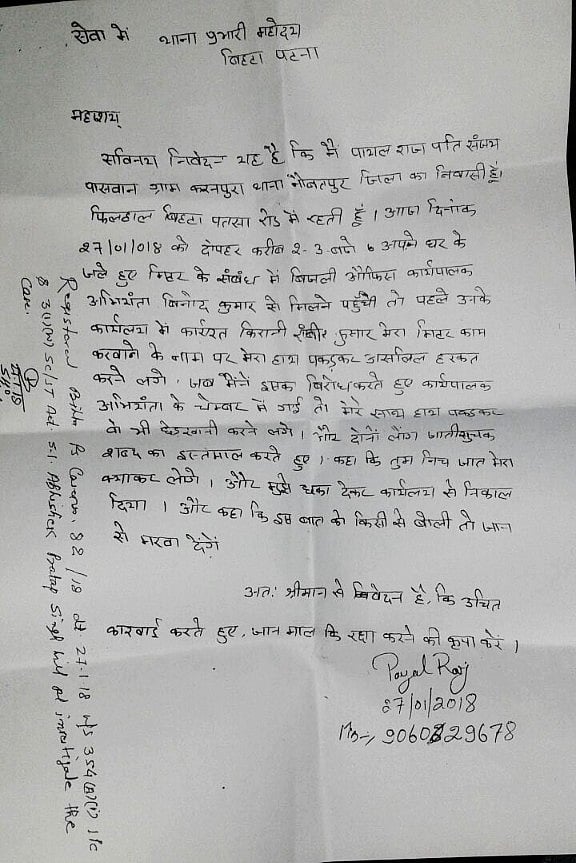 सेवा में थाना प्रभारी महोदय
बिहटा पटना
महाशय
सविनय निवेदन यह है कि मैं पायल राज पति संजय
पासवान ग्राम करनपुरा थाना नौबतपुर जिला का निवासी हूँ।
फिलहाल बिहटा पतसा रोड में रहती हूँ। आज दिनांक
27/01/018 को दोपहर करीब 2-3 बजे अपने घर के
जले हुए मिटर के संबंध में बिजली ऑफिस कार्यपालक
अभियंता बिनोद कुमार से मिलने पहुँची तो पहले उनके
कार्यालय में कार्यरत किरानी कुमार मेरा मिटर काम
करवाने के नाम पर मेरा हाथ पकड़कर अश्लिल हरकत
करने लगे। जब मैंने इसका विरोध करते हुए कार्यपालक
अभियंता के चेम्बर में गई तो मेरे साथ हाथ पकड़कर
वो भी छेड़खानी करने लगे। और दोनों लोग जातीसूचक
शब्द का इस्तमाल करते हुए। कहा कि तुम निच जात मेरा
क्या कर लोगे। और मुझे धका देकर कार्यालय से निकाल
दिया। और कहा कि इस बात को किसी से बोली तो जान
से मरवा देंगें
अतः श्रीमान से निवेदन है, कि उचित
कारवाई करते हुए, जान माल कि रक्षा करने की कृपा करें।
Payal Raj
27/01/2018
Mb→ 9060829678
Registered Bihta P.S Case no. 82/18 dt 27.1.18 u/s 354(A)(i) IPC
& 3(i)(w) SC/ST Act. S.I. Abhishek Pratap Singh will pl investigate the
Case.
27.1.18
S.H.O.